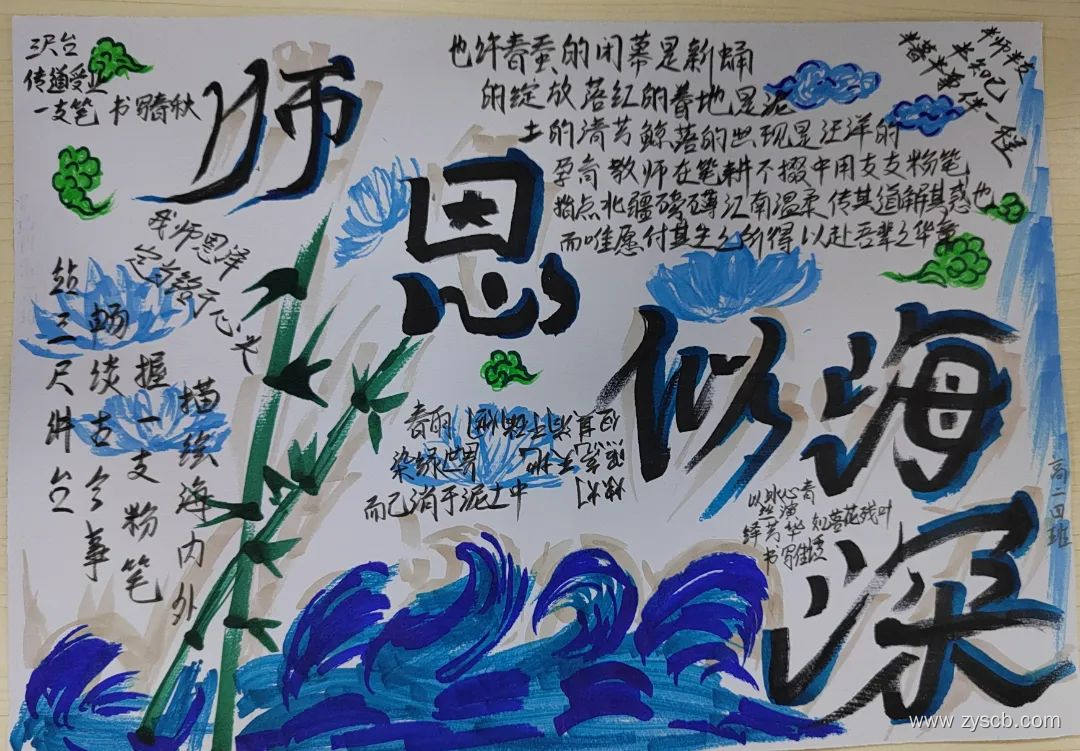 三尺台
传道受业
一支笔 书写春秋
师
恩
似海
深
也许春蚕的闭幕是新蛹
的绽放落红的着地是泥
土的清芳鲸落的出现是汪洋的
孕育教师在笔耕不掇中用支支粉笔
指点北疆磅礴江南温柔传其道解其惑也
而唯愿付其生之所得以赴吾辈之华章
半师半友
半知己
半暮半尊伴一程
我师恩泽
定当铭于心头
站三尺讲台
畅谈古今事
握一支粉笔
描绘海内外
春雨
染绿世界
而己消于泥土中
以冰心青
丝演
绎芳华 如落花残叶
书写佳话
高二四班
www.zyscb.com